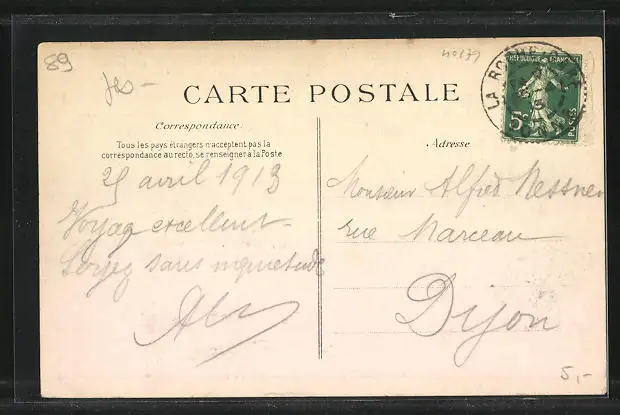 89
40179
CARTE POSTALE
LA ROCHE
RÉPUBLIQUE FRANÇAISE
5c POSTES
Correspondance
Tous les pays étrangers n'acceptent pas la
correspondance au recto, se renseigner à la Poste
Adresse
25 avril 1913
Voyage excellent
Soyez sans inquietude
Monsieur Alfred Messner
rue Marceau
Dijon
5,-